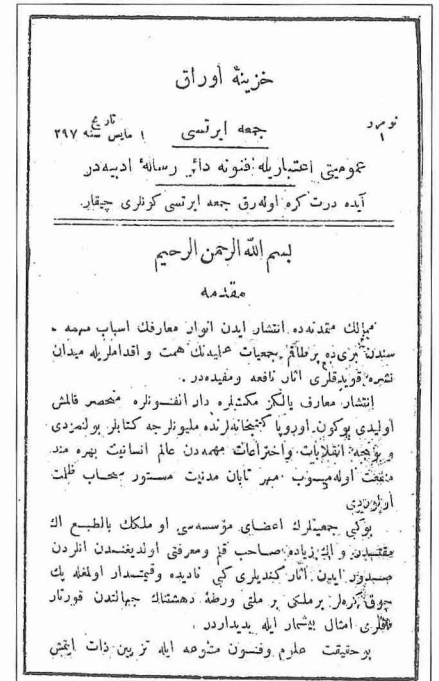 خزینهٔ اوراق
نومرو ١
جمعه ایرتسی
تاریخ ١ مایس سنه ٢٩٧
عمومیتی اعتباریله فنونه دائر رسالهٔ ادبیه‌در
آیده درت کره اوله‌رق جمعه ایرتسی کونلری چیقار.
بسم الله الرحمن الرحیم
مقدمه
ممالك متمدنه‌ده انتشار ایدن انوار معارفك اسباب مهمه ـ
سندن بری‌ده برطاقم جمعیات علمیه‌نك همت و اقداملریله میدان
نشره قویدقلری آثار نافعه ومفیده‌در.
انتشار معارف یالکز مکتبلره دار الفنونلره منحصر قالمش
اولیدی بوکون اوروپا کتبخانه‌لرنده ملیونلرجه کتابلر بولنمزدی
و بونجه انقلابات واختراعات مهمه‌دن عالم انسانیت بهره مند
منفعت اوله‌میوب مهر تابان مدنیت مستور سحاب ظلمت
اولوردی
بوکبی جمعیتلرك اعضای مؤسسه‌سی او ملکك بالطبع اك
مقتدری و اك زیاده صاحب قلم ومعرفتی اولدیغندن انلردن
صدور ایدن آثار کندیلری کبی نادیده وقیمتدار اولمغله پك
چوق کره‌لر بر ملکی بر ملتی ورطهٔ دهشتناك جهالتدن قورتار
دقلری امثال بیشمار ایله پدیداردر.
بوحقیقت علوم وفنون متنوعه ایله تزیین ذات ایتمش